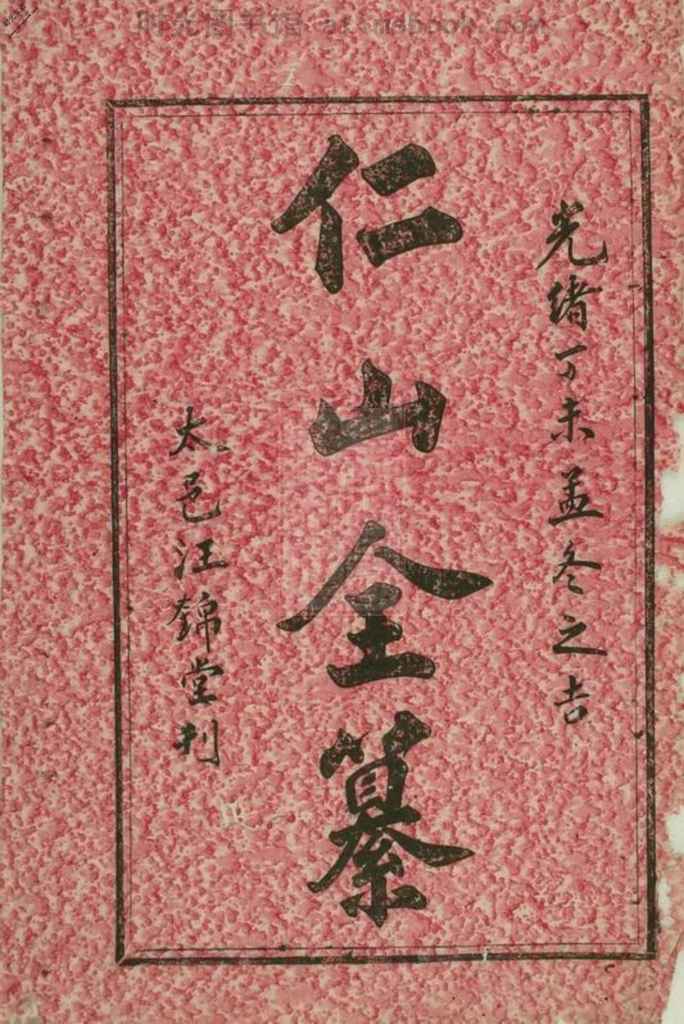 光绪丁未孟冬之吉
仁山全纂
太邑汪錦堂刊